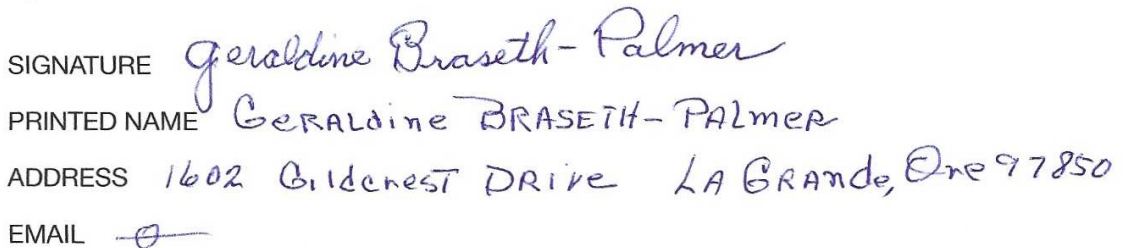 SIGNATURE Geraldine Braseth-Palmer
PRINTED NAME GERALdine BRASETH-PALmER
ADDRESS 1602 GildcresT DRive LA GRANde, Ore 97850
EMAIL